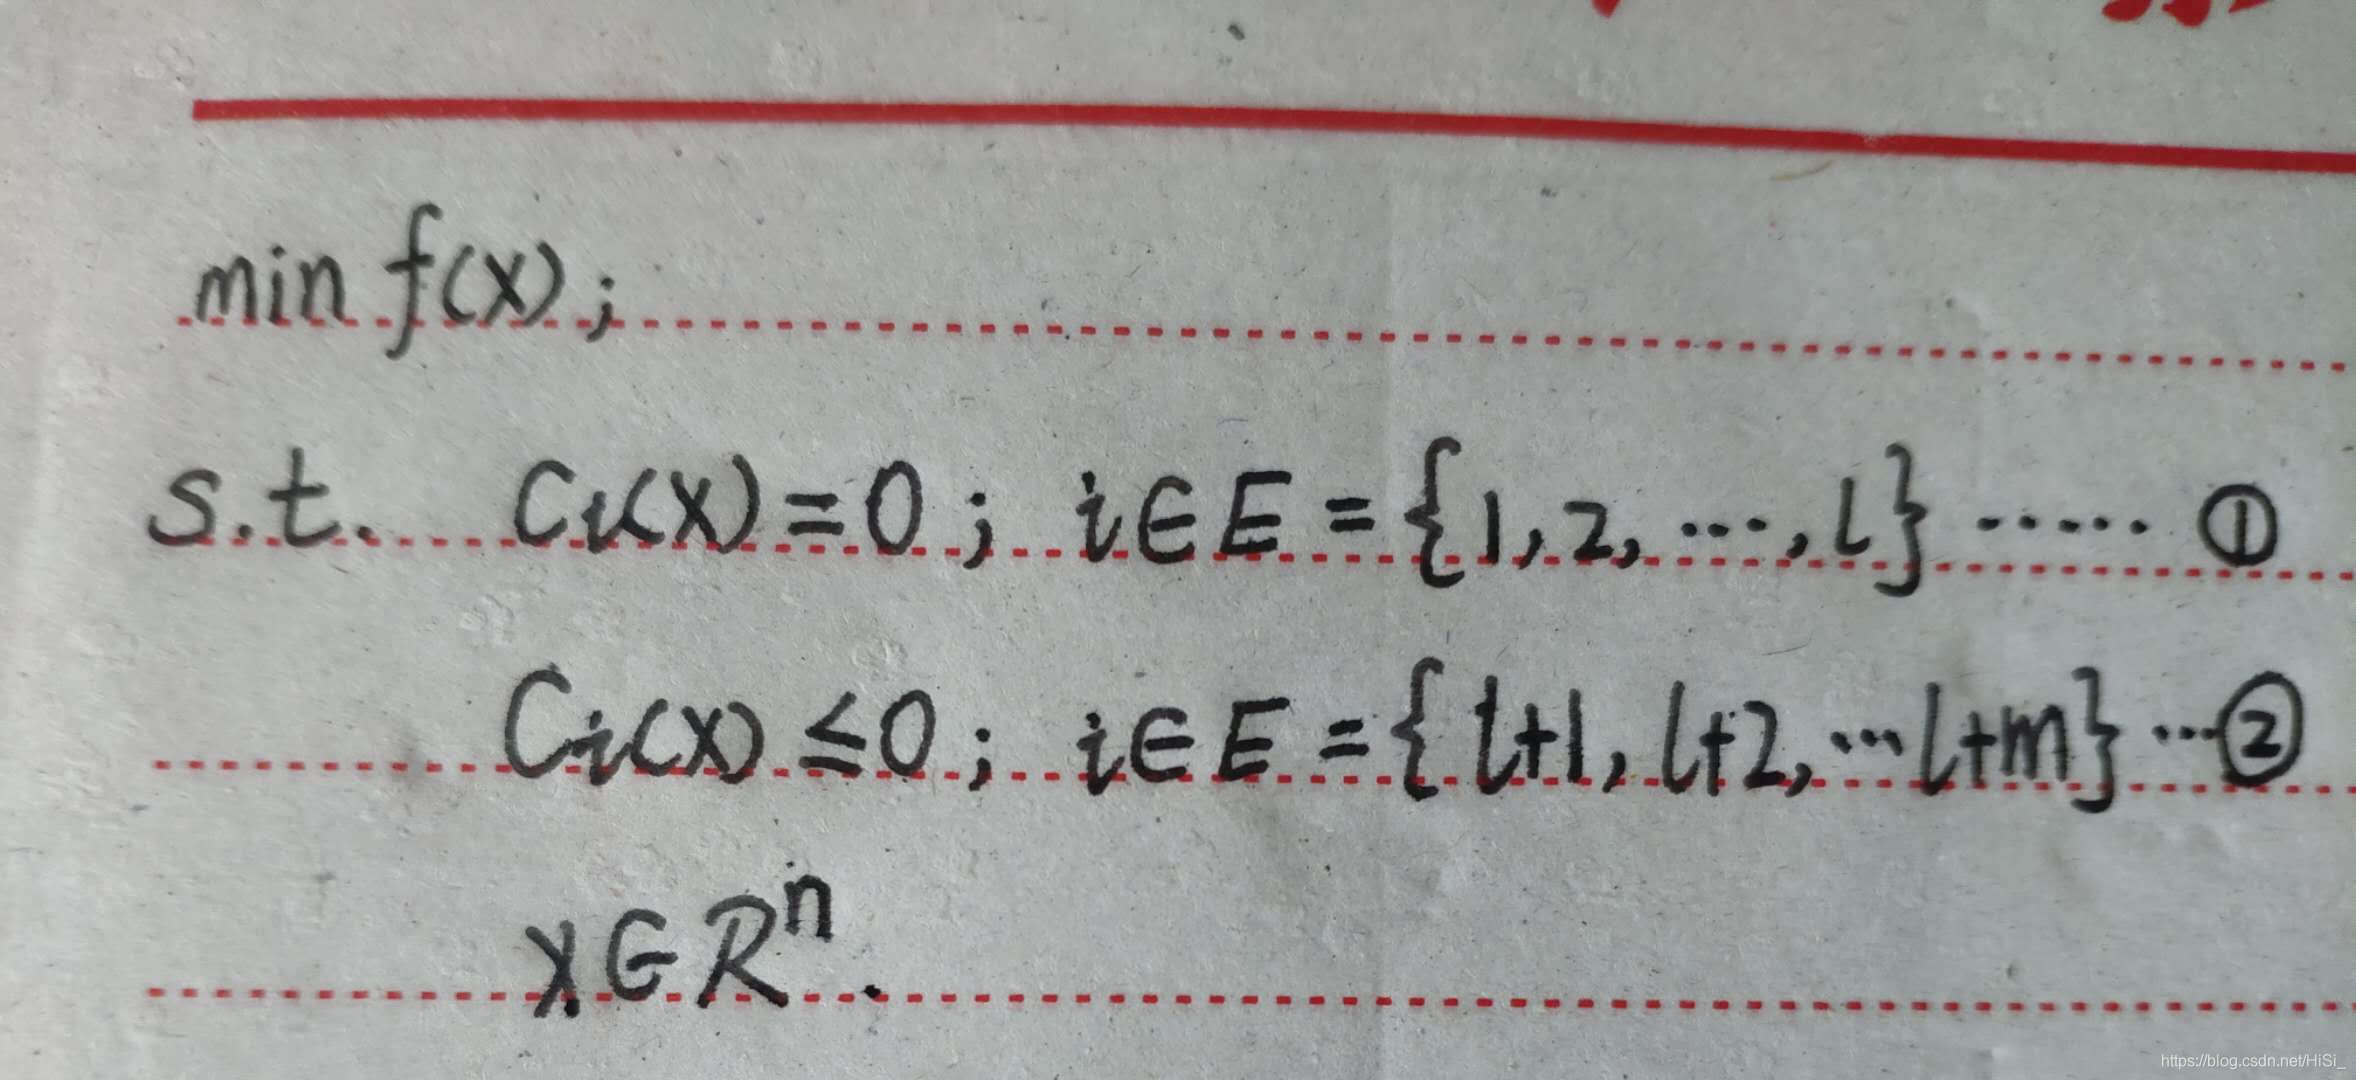 min f(x);
s.t. Ci(x)=0; i∈E={1,2,…,l}……①
Ci(x)≤0; i∈E={l+1,l+2,…l+m}…②
x∈Rⁿ.
https://blog.csdn.net/HiSi_